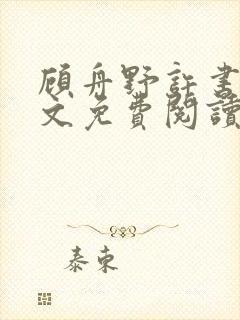 顾舟野許書
文免費閱讀
泰東